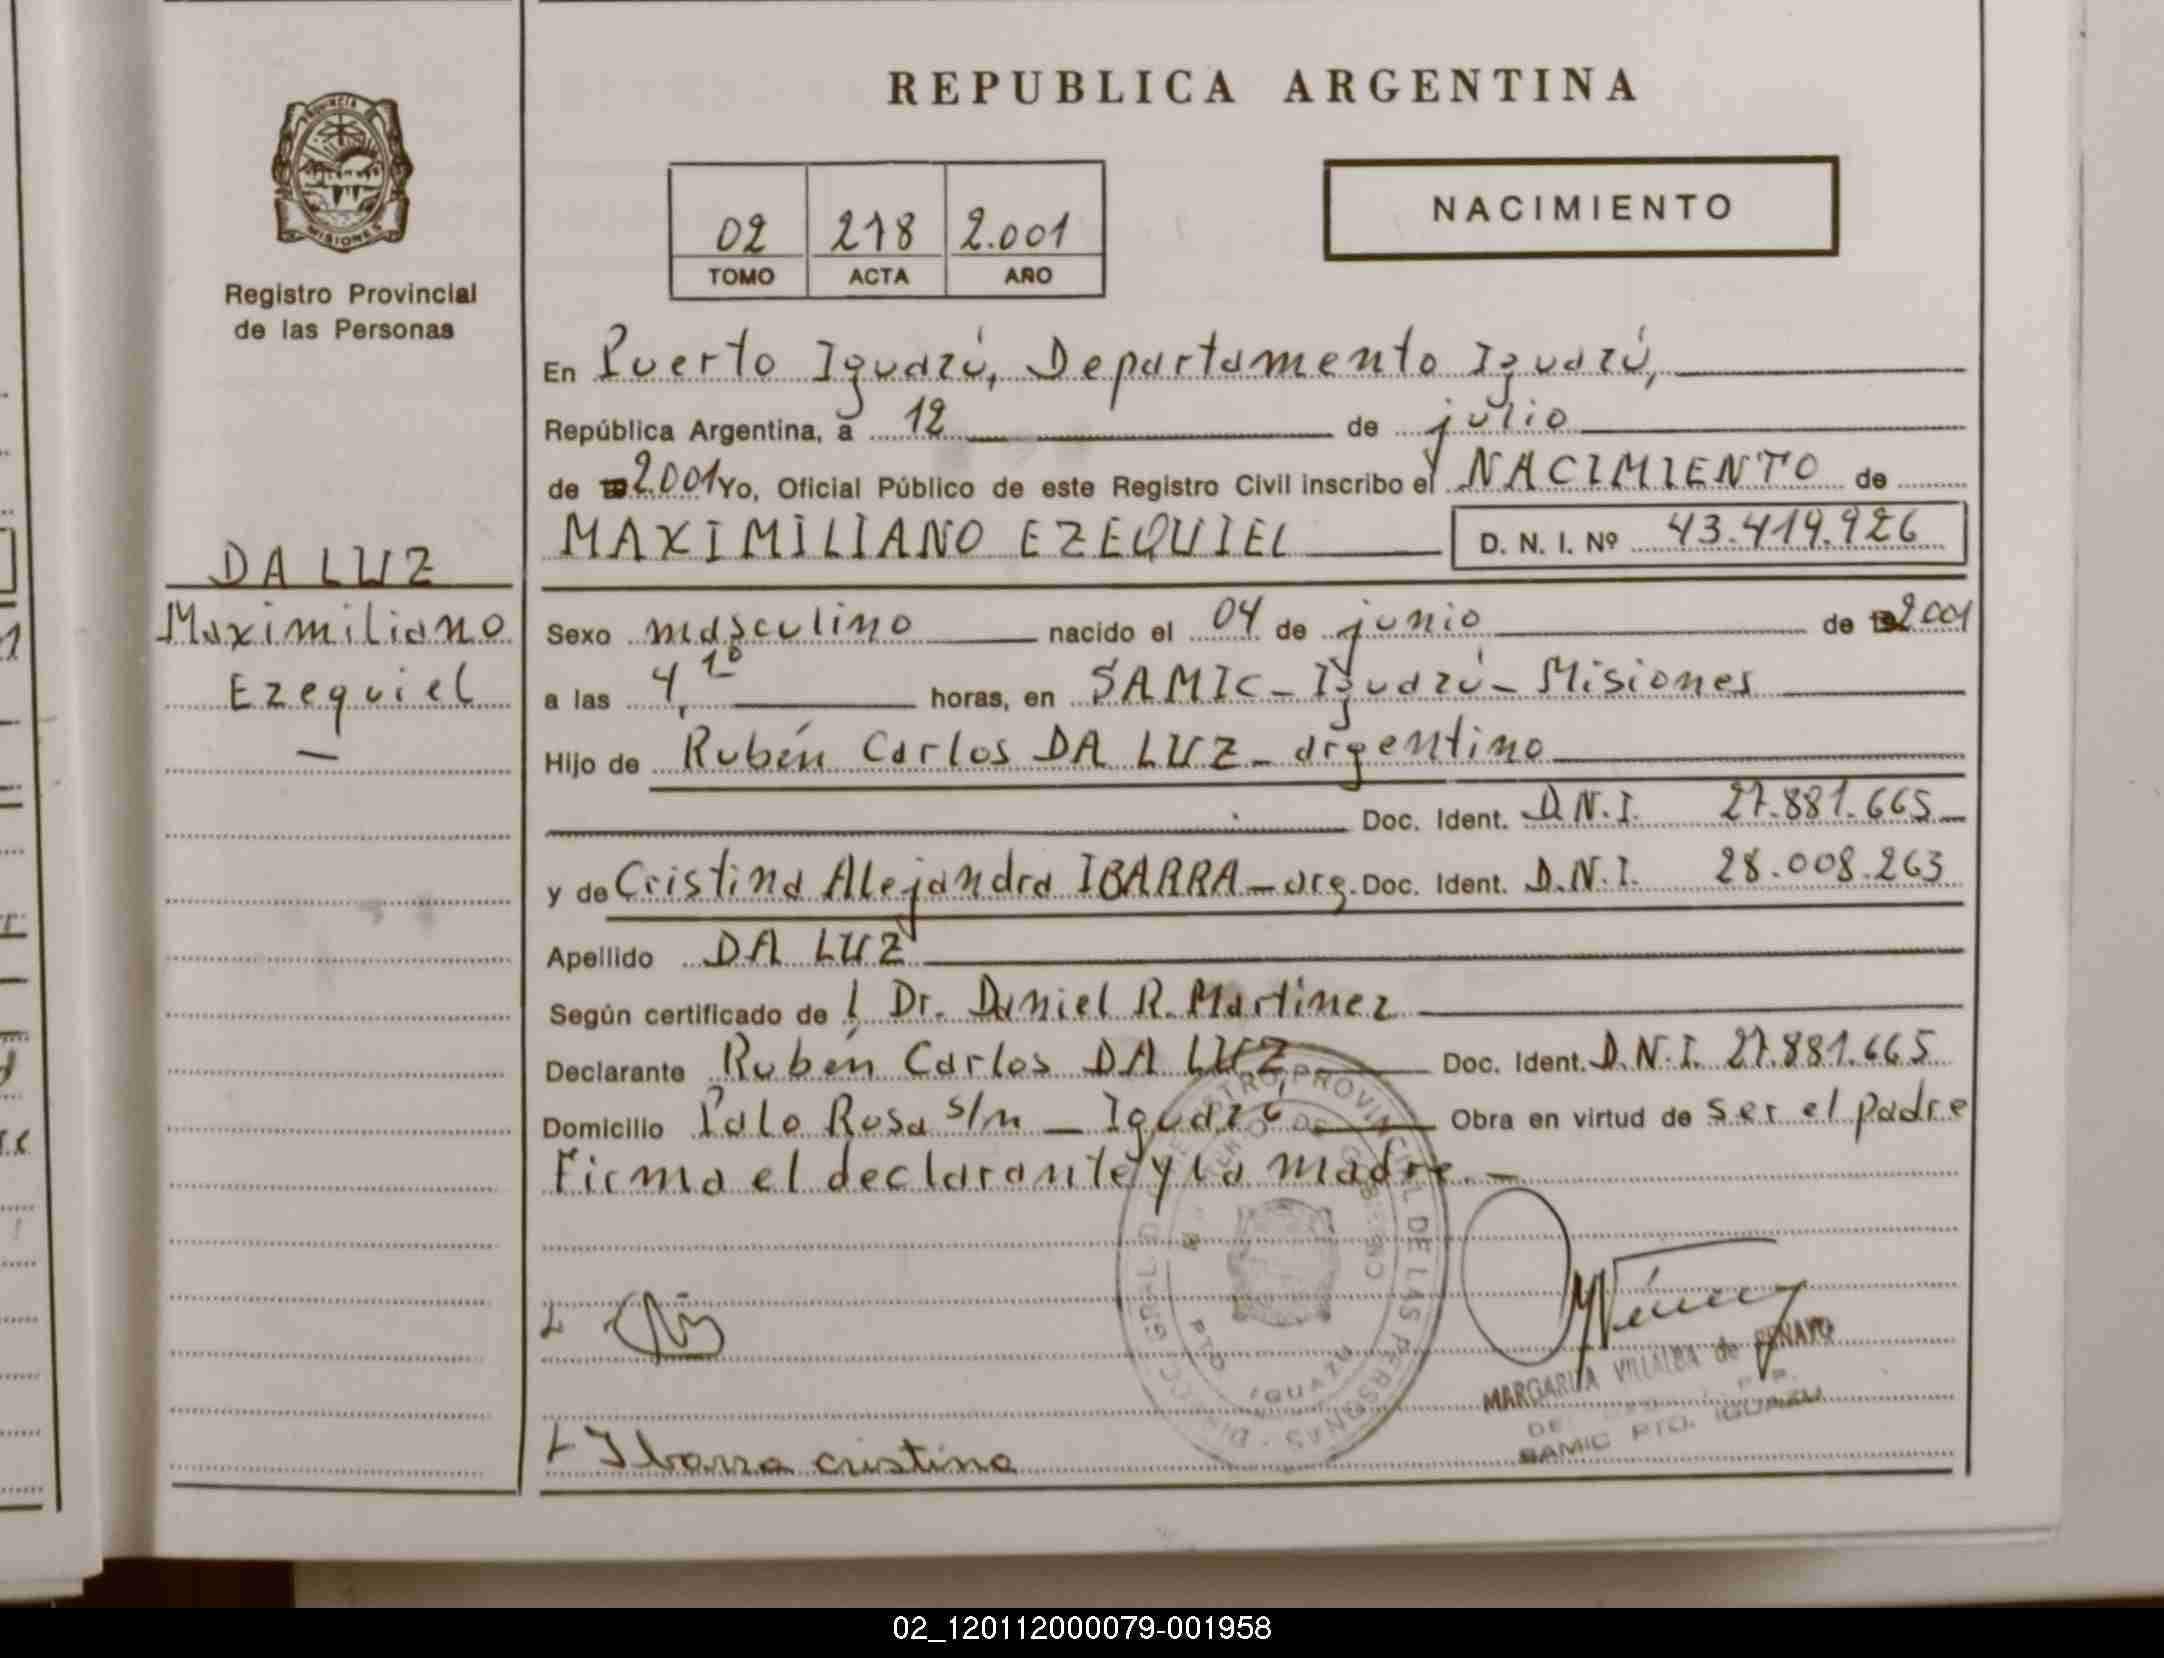 REPUBLICA ARGENTINA
PROVINCIA
MISIONES
Registro Provincial
de las Personas
02 218 2.001
TOMO ACTA AÑO
NACIMIENTO
En Puerto Iguazú, Departamento Iguazú,
República Argentina, a 12 de julio
de 2.001 Yo, Oficial Público de este Registro Civil inscribo el NACIMIENTO de
MAXIMILIANO EZEQUIEL D. N. I. Nº 43.419.926
DA LUZ
Maximiliano
Ezequiel
Sexo masculino nacido el 04 de junio de 2001
a las 4,10 horas, en SAMIC - Iguazú - Misiones
Hijo de Rubén Carlos DA LUZ - argentino
Doc. Ident. D.N.I. 27.881.665
y de Cristina Alejandra IBARRA - arg. Doc. Ident. D.N.I. 28.008.263
Apellido DA LUZ
Según certificado de Dr. Daniel R. Martinez
Declarante Rubén Carlos DA LUZ Doc. Ident. D.N.I. 27.881.665
Domicilio Palo Rosa s/n - Iguazú Obra en virtud de ser el padre
Firma el declarante y la madre.-
DIRECC GRAL DE REGISTRO PROVINCIAL DE LAS PERSONAS
PTO IGUAZU
MARGARITA VILLALBA de BENAYO
SAMIC PTO. IGUAZU
Ibarra cristina
02_120112000079-001958